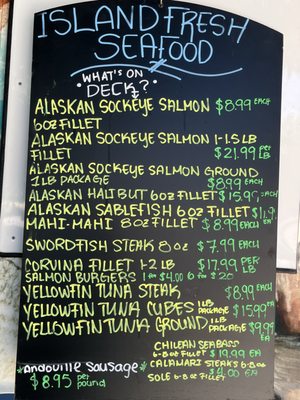 ISLAND FRESH
SEAFOOD
WHAT'S ON
DECK?
ALASKAN SOCKEYE SALMON $8.99 EACH
6oz FILLET
ALASKAN SOCKEYE SALMON 1-1.5 LB
FILLET $21.99 PER LB
ALASKAN SOCKEYE SALMON GROUND
1LB PACKAGE $8.99 EACH
ALASKAN HALIBUT 6oz FILLET $15.99 EACH
ALASKAN SABLEFISH 6oz FILLET
MAHI-MAHI 8oz FILLET $8.99 EACH
SWORDFISH STEAK 8oz $7.99 EACH
CORVINA FILLET 1-2 LB $17.99 PER LB
SALMON BURGERS 1 for $4.00 6 for $20
YELLOWFIN TUNA STEAK $8.99 EACH
YELLOWFIN TUNA CUBES 1LB PACKAGE $15.99 EA
YELLOWFIN TUNA GROUND 1LB PACKAGE $9.99 EA
CHILEAN SEABASS
6-8oz FILLET $19.99 EA
CALAMARI STEAKS EA
SOLE 6-8oz FILLET $4.00 EA
*Andouille Sausage*
$8.95 per pound